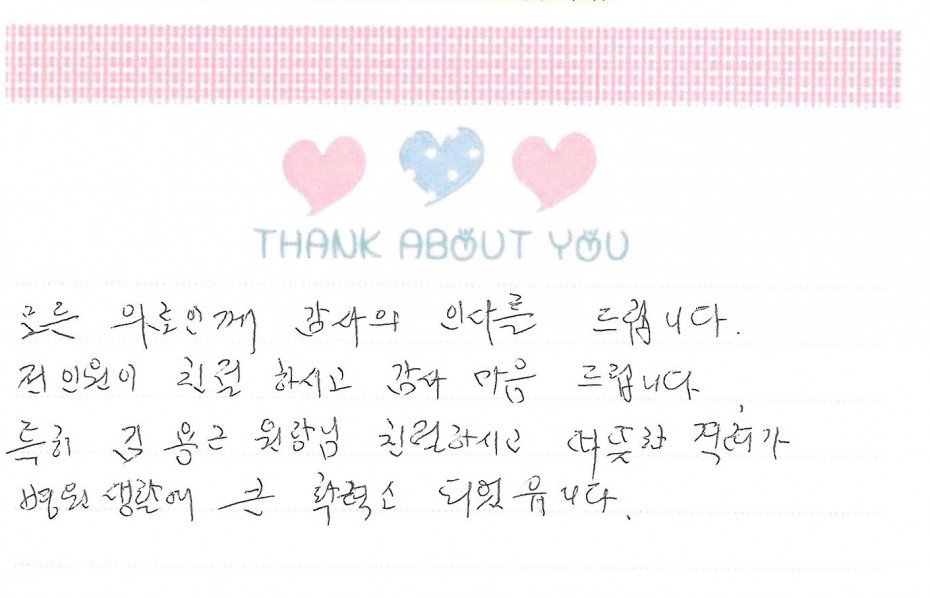 THANK ABOUT YOU
모든 의료인께 감사의 인사를 드립니다.
전 인원이 친절 하시고 감사 마음 드립니다
특히 김용근 원장님 친절하시고 따뜻한 격려가
병원생활에 큰 활력소 되었읍니다.